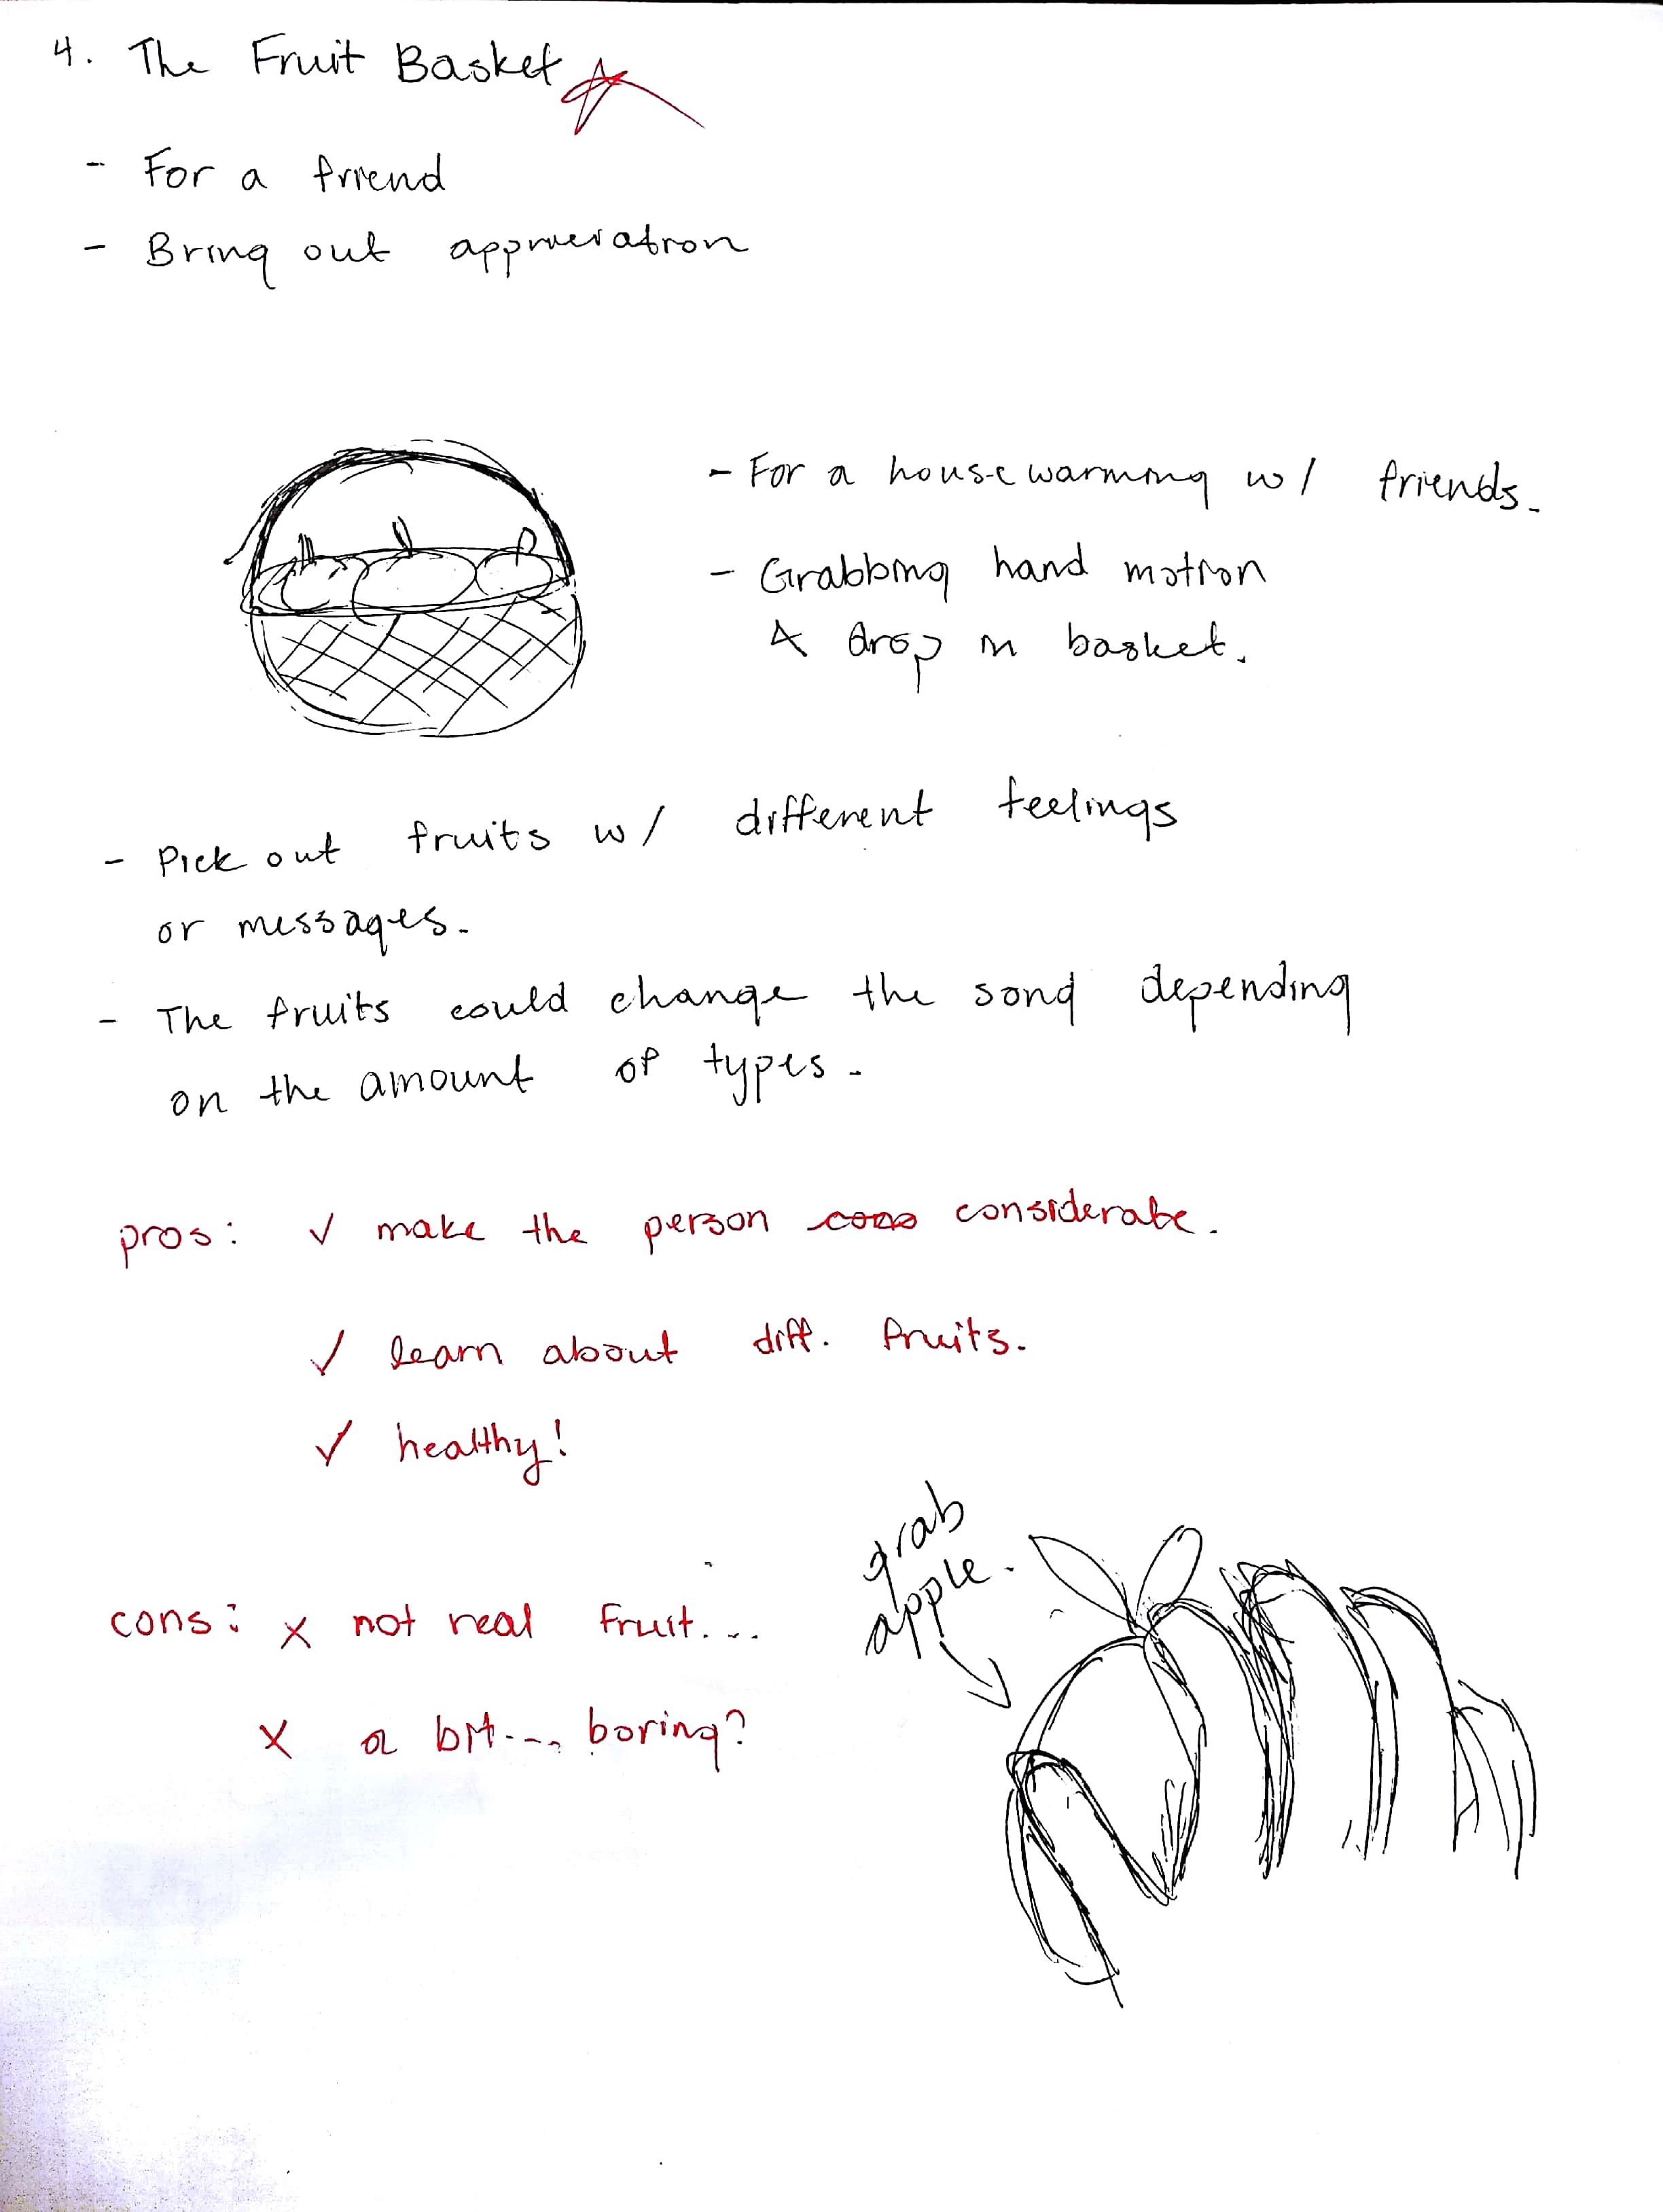 4. The Fruit Basket
- For a friend
- Bring out appreciation
- For a housewarming w/ friends.
- Grabbing hand motion
& drop in basket.
- Pick out fruits w/ different feelings
or messages.
- The fruits could change the song depending
on the amount of types.
pros: ✓ make the person considerate.
✓ learn about diff. fruits.
✓ healthy!
grab
apple.
cons: x not real fruit...
x a bit... boring?